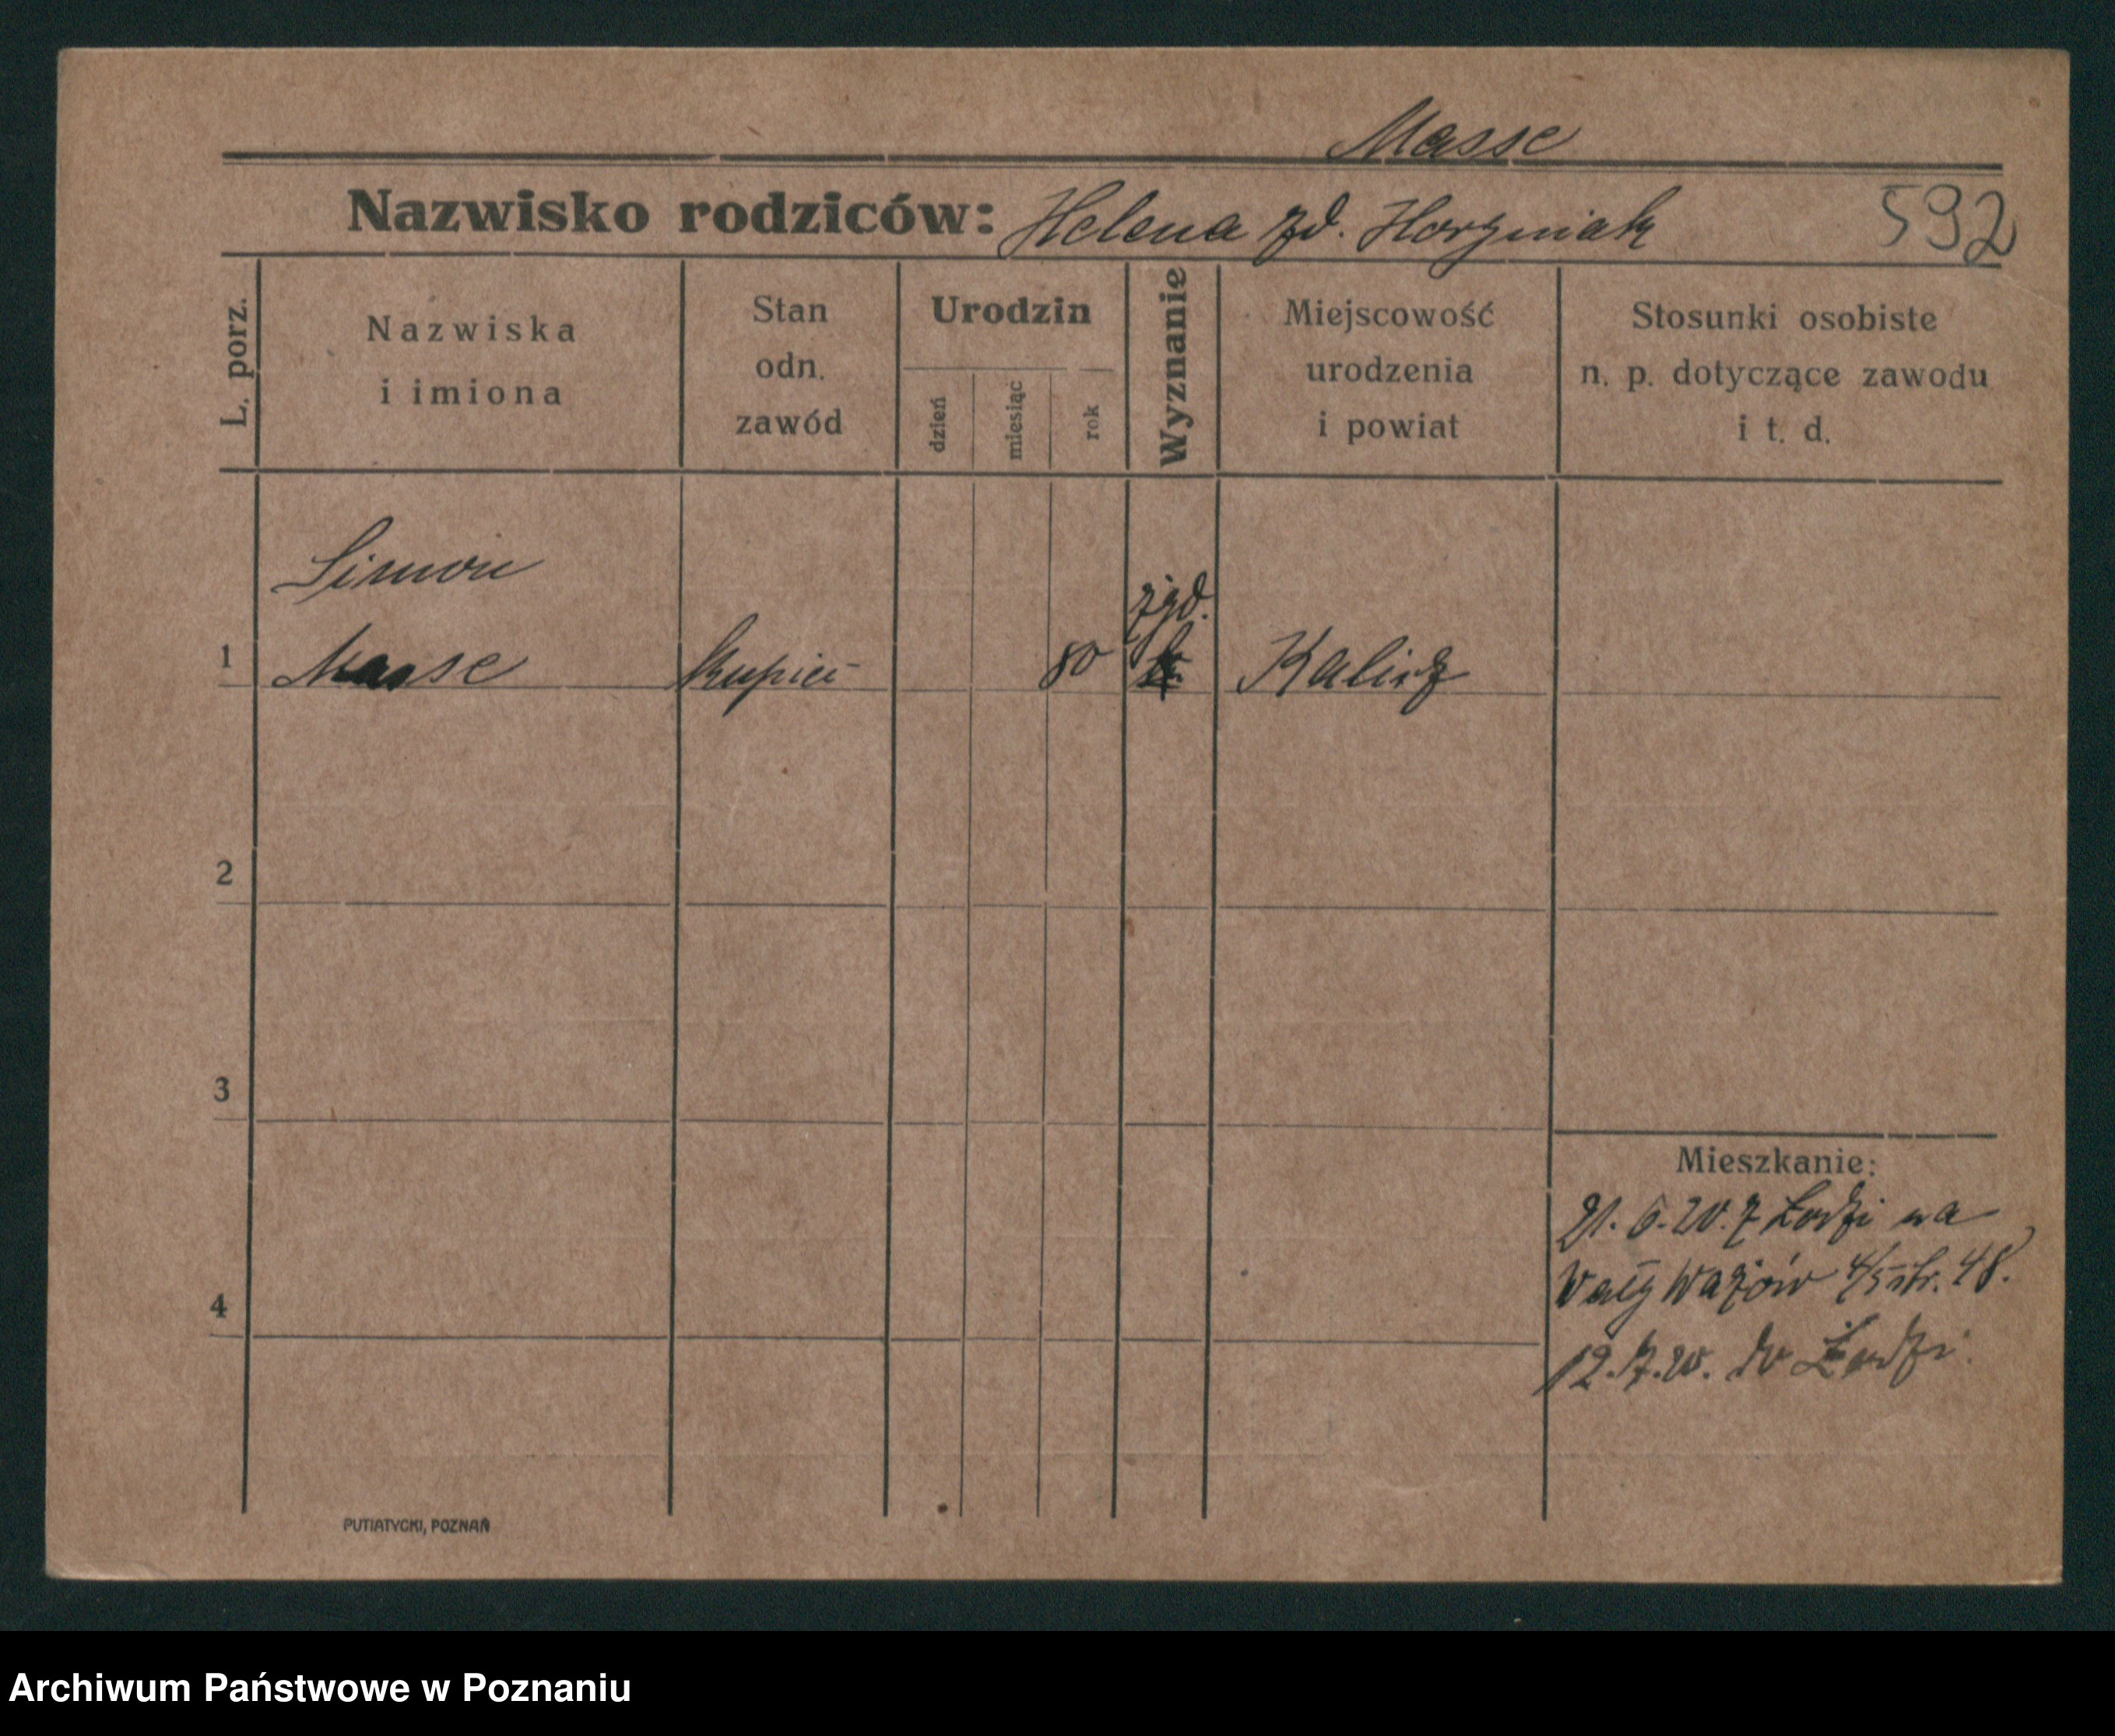 Masse
Nazwisko rodziców: Helena żd. Horzmiak 592
L. porz.
Nazwiska
i imiona
Stan
odn.
zawód
Urodzin
dzień
miesiąc
rok
Wyznanie
Miejscowość
urodzenia
i powiat
Stosunki osobiste
n. p. dotyczące zawodu
i t. d.
Simon
żyd.
1 Masse kupiec 80 Kalisz
2
3
Mieszkanie:
21. 6. 20. z Łodzi na
Wały Wazów 4/5 str. 48.
4
12. 7. 20. do Łodzi.
PUTIATYCKI, POZNAŃ
Archiwum Państwowe w Poznaniu